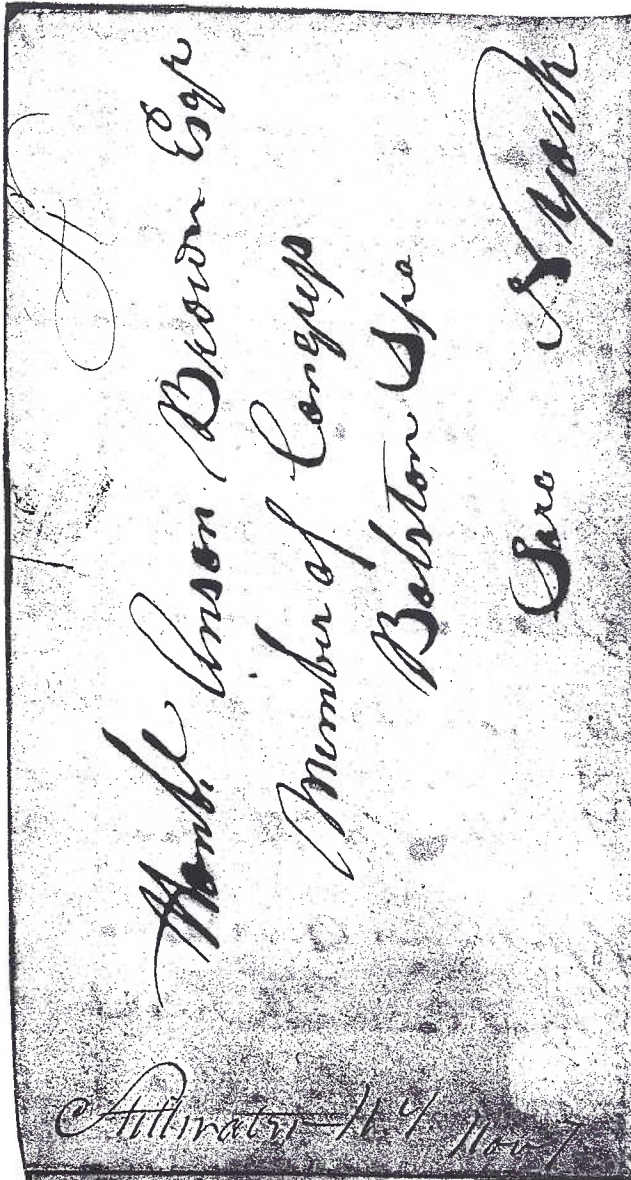 Stillwater N.Y
Nov 7
Honb.l Anson Brown Esqr
Member of Congress
Bolston Spa
Sara N York